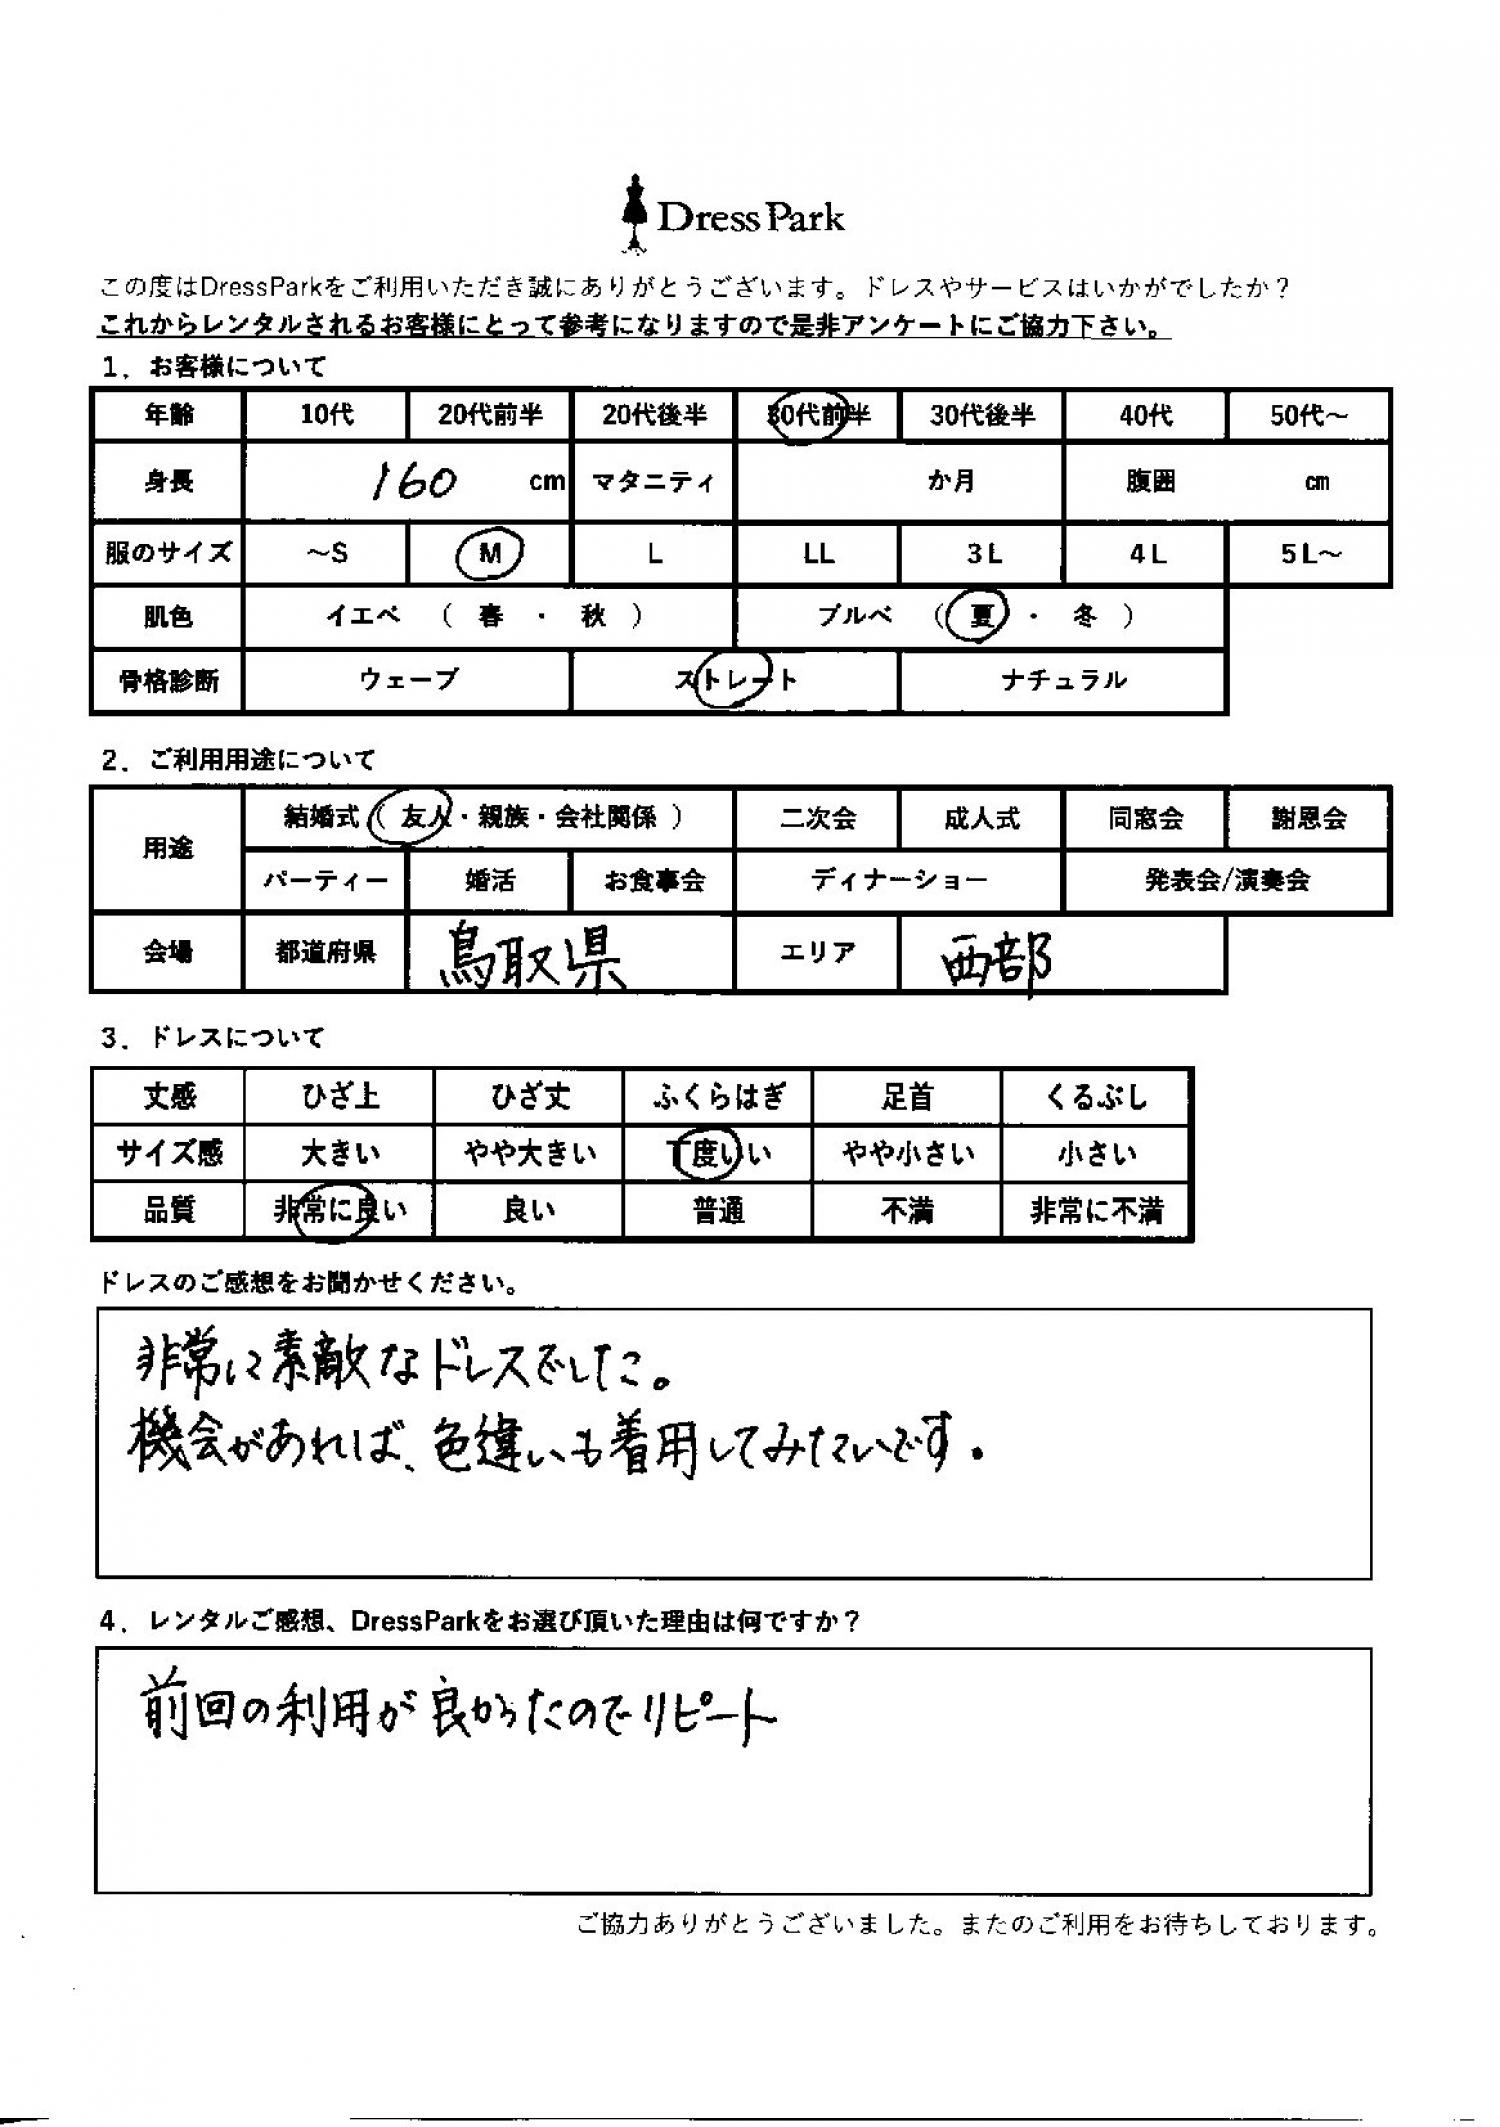 Dress Park
この度はDressParkをご利用いただき誠にありがとうございます。ドレスやサービスはいかがでしたか？
これからレンタルされるお客様にとって参考になりますので是非アンケートにご協力下さい。
1．お客様について
年齢 10代 20代前半 20代後半 30代前半 30代後半 40代 50代～
身長 160 cm マタニティ か月 腹囲 cm
服のサイズ ～S M L LL 3L 4L 5L～
肌色 イエベ （ 春 ・ 秋 ） ブルベ （ 夏 ・ 冬 ）
骨格診断 ウェーブ ストレート ナチュラル
2．ご利用用途について
用途 結婚式（ 友人・親族・会社関係 ） 二次会 成人式 同窓会 謝恩会
パーティー 婚活 お食事会 ディナーショー 発表会/演奏会
会場 都道府県 鳥取県 エリア 西部
3．ドレスについて
丈感 ひざ上 ひざ丈 ふくらはぎ 足首 くるぶし
サイズ感 大きい やや大きい 丁度いい やや小さい 小さい
品質 非常に良い 良い 普通 不満 非常に不満
ドレスのご感想をお聞かせください。
非常に素敵なドレスでした。
機会があれば、色違いも着用してみたいです。
4．レンタルご感想、DressParkをお選び頂いた理由は何ですか？
前回の利用が良かったのでリピート
ご協力ありがとうございました。またのご利用をお待ちしております。